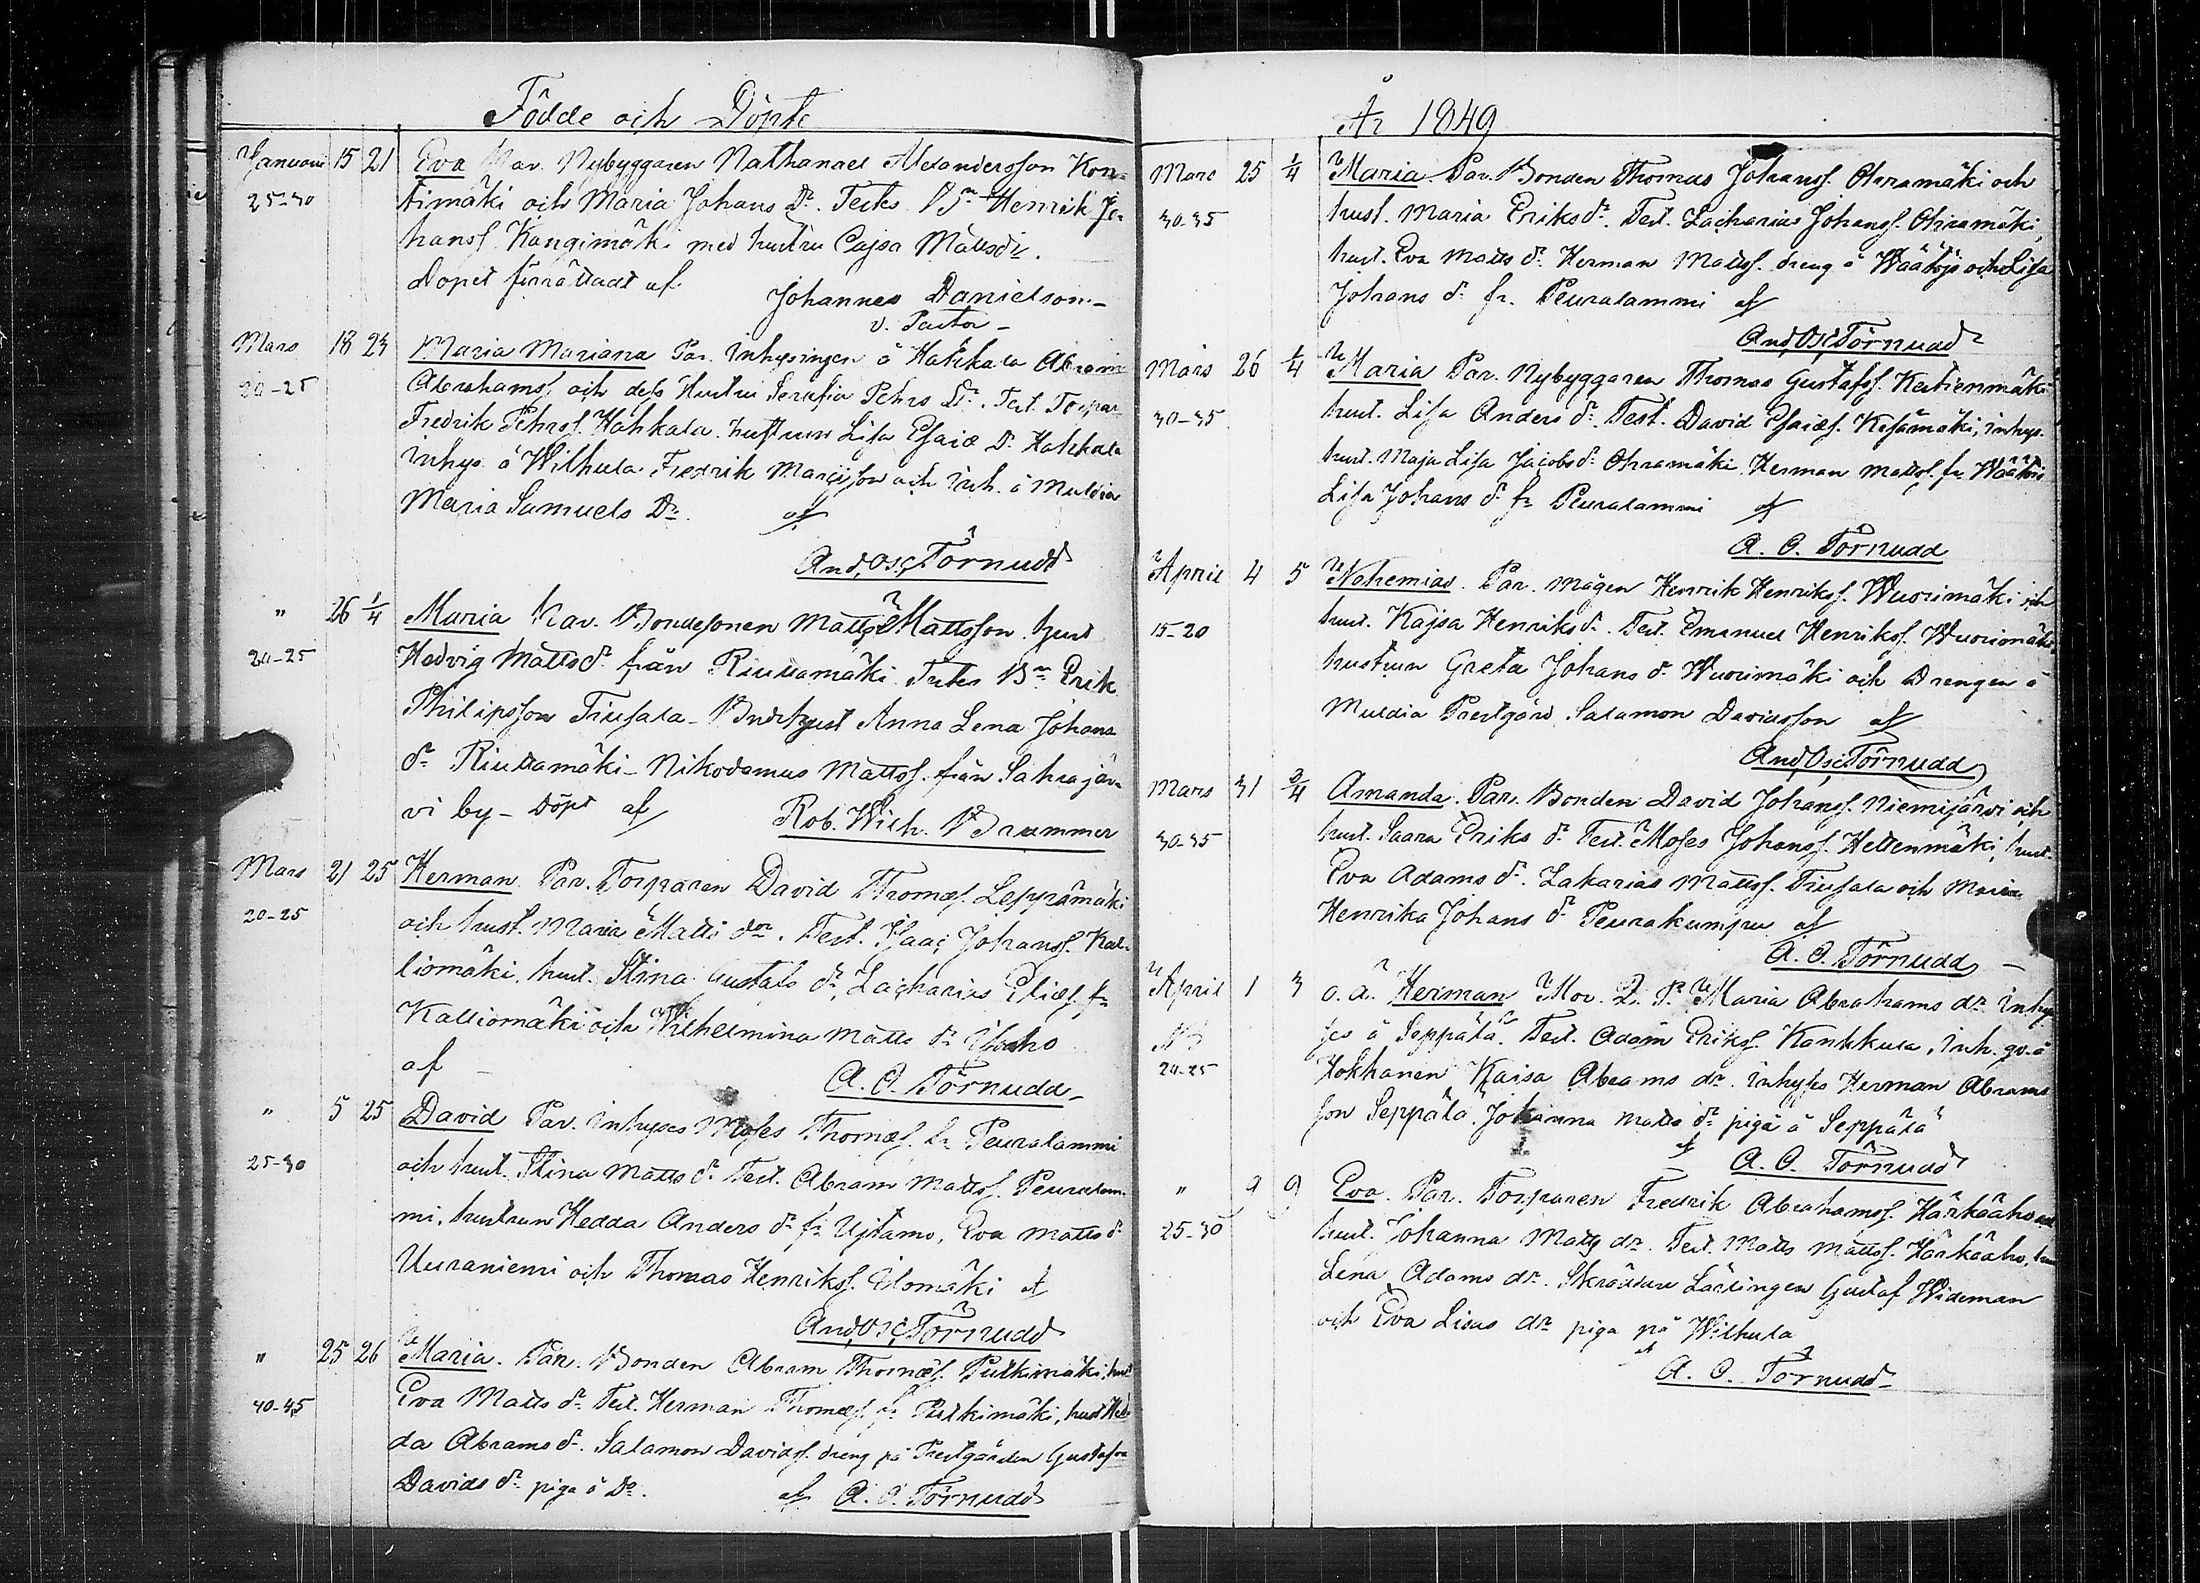 Födde och Döpte
Januari 15 21 Eva Par. Nybyggaren Nathanael Alexandersson Kon-
25-30 timäki och Maria Johans Dr. Testes Bn Henrik Jo-
hanss. Kangimäki med hustru Cajsa Mattsdr.
Dopet förrättadt af Johannes Danielson
v. Pastor
Mars 18 23 Maria Mariana Par. Inhysingen å Hakkala Abram
20-25 Abrahamss. och dess Hustru Serafia Pehrs Dr. Test. Torpar
Fredrik Pehrss. Hahkala. hustrun Lisa Esaiæ Dr. Hahkala
inhys. å Wilhula Fredrik och Inh. å Muldia
Maria Samuels Dr. af
And. Osc. Törnudd
" 26 1/4 Maria Par. Bondesonen Matts Mattsson hust
20-25 Hedvig Mattsdr från Riuttamäki Testes Bn Erik
Philipsson Tiusala - hust Anna Lena Johans
dr Riuttamäki - Nikodemus Mattss. från Sahrajär-
vi by - Döpt af Rob. Wilh. Brummer
Mars 21 25 Herman. Par. Torparen David Thomæs. Leppämäki
20-25 och hust. Maria Matts dr. Test. Isaac Johanss. Kal-
liomäki, hust. Stina Gustafs dr, Zacharias Eliæs. fr
Kalliomäki och Wilhelmina Matts dr
af A. O. Törnudd
" 5 25 David Par. inhyses Moses Thomæs. fr Peuralammi
25-30 och hust. Stina Matts dr Test. Abram Mattss. Peuralam-
mi, hustrun Hedda Anders dr fr Ujtamo, Eva Matts dr
Uuraniemi och Thomas Henrikss. Ulomäki af
And. Osc. Törnudd
" 25 26 Maria. Par. Bonden Abram Thomæs. Pulkimäki, hust
40-45 Eva Matts dr. Test. Herman Thomæs. fr Pulkimäki, hust Hed-
da Abrams dr. Salamon Davidss. dreng på Prestgården Gustafva
Davids dr piga å Do. af A. O. Törnudd
År 1849
Mars 25 1/4 Maria. Par. Bonden Thomas Johanss. Ohramäki och
30-35 hust. Maria Eriks dr. Test. Zacharias Johanss. Ohramäki,
hust. Eva Matts dr. Herman Mattss. dreng å och Lisa
Johans dr fr. Peuralammi af
And. Osc. Törnudd
Mars 26 1/4 Maria Par. Nybyggaren Thomas Gustafss. Keitienmäki
30-35 hust. Lisa Anders dr. Test. David Esaiæs. Kesämäki, inhys.
hust. Maja Lisa Jacobs dr Ohramäki Herman Mattss. fr
Lisa Johans dr fr Peuralammi af
A. O. Törnudd
April 4 5 Nehemias. Par. Mågen Henrik Henrikss. Wuorimäki och
15-20 hust. Kajsa Henriks dr. Test. Emanuel Henrikss. Wuorimäki
hustrun Greta Johans dr Wuorimäki och Drengen å
Muldia Prestgård Salamon Davidsson af
And. Osc. Törnudd
Mars 31 3/4 Amanda. Par. Bonden David Johanss. Niemijärvi och
30-35 hust. Saara Eriks dr Test. Moses Johanss. Heltenmäki, hust.
Eva Adams dr. Zakarias Mattss. Tiusala och Maria
Henrika Johans dr Peurakumpu af
A. O. Törnudd
April 1 3 o. ä. Herman Mor. Q. P. Maria Abrahams dr inhy
20-25 ses å Seppälä. Test. Adam Erikss. Kankkula, inh. qv. å
Hokkanen Kaisa Abrams dr. inhyses Herman Abrams
son Seppälä. Johanna Matts dr piga å Seppälä
af A. O. Törnudd
" 9 9 Eva. Par. Torparen Fredrik Abrahamss. Härkäaho och
25-30 hust. Johanna Matts dr. Test. Matts Mattss. Härkäaho, hust
Lena Adams dr. Skräddare Lärlingen Gustaf Wideman
och Eva Lisas dr piga på Wilhula
af
A. O. Törnudd